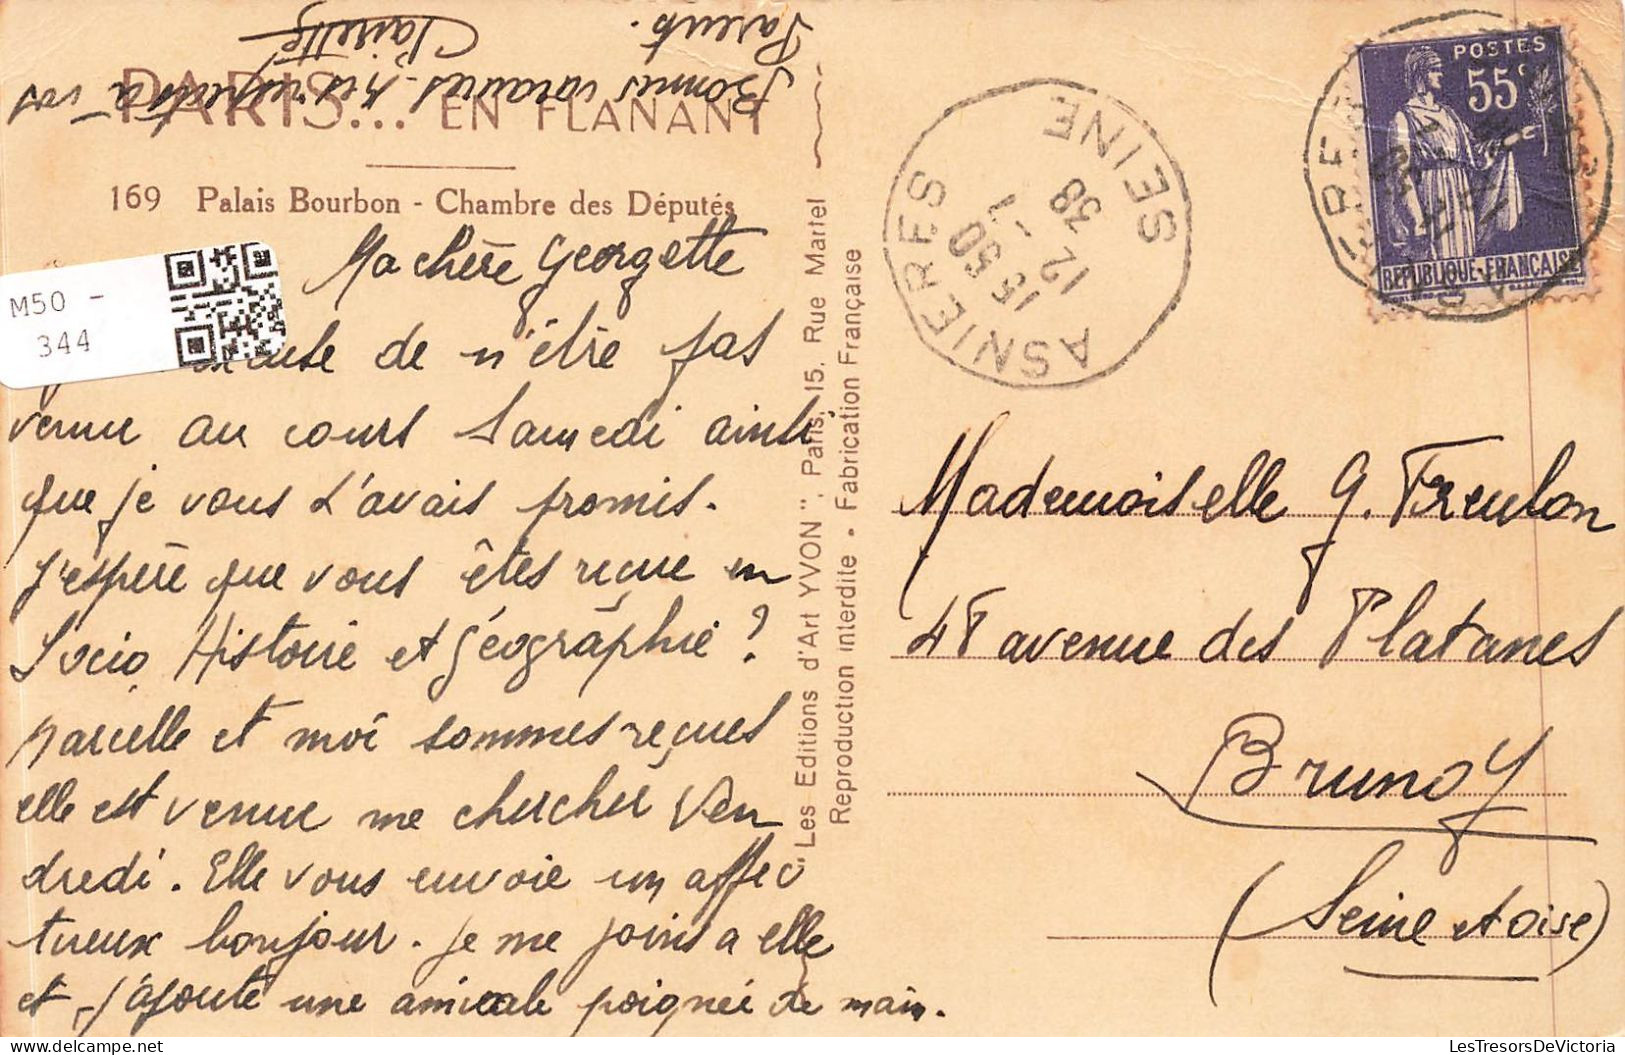 Bonnes vacances. Mes respects à vos
Parents.
Clairette
PARIS... EN FLANANT
169 Palais Bourbon - Chambre des Députés
M50 -
344
Ma chère Georgette
de n'être pas
venue au cours Samedi ainsi
que je vous l'avais promis.
J'espère que vous êtes reçue en
Socio, Histoire et Géographie ?
Marcelle et moi sommes reçues
elle est venue me chercher Ven
dredi. Elle vous envoie un affec
tueux bonjour. Je me joins a elle
et j'ajoute une amicale poignée de main.
"Les Editions d'Art YVON", Paris, 15, Rue Martel
Reproduction Interdite - Fabrication Française
ASNIERES
SEINE
15 50
12 - 7
38
POSTES
55c
REPUBLIQUE-FRANÇAISE
Mademoiselle G. Treulon
47 avenue des Platanes
Brunoy
(Seine et oise)
LesTresorsDeVictoria